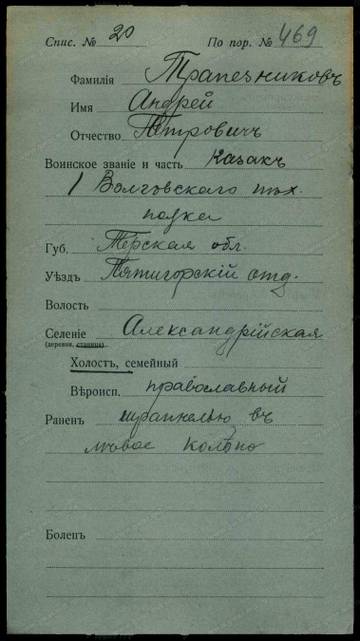 Спис. № 20 По пор. № 469
Фамилія Трапезниковъ
Имя Андрей
Отчество Петровичъ
Воинское званіе и часть казакъ
1 Волговскаго пѣх.
полка
Губ. Терская обл.
Уѣздъ Пятигорскій отд.
Волость
Селеніе Александрійская
(деревня, станица)
Холостъ, семейный
Вѣроисп. православный
Раненъ шрапнелью въ
лѣвое колѣно
Боленъ